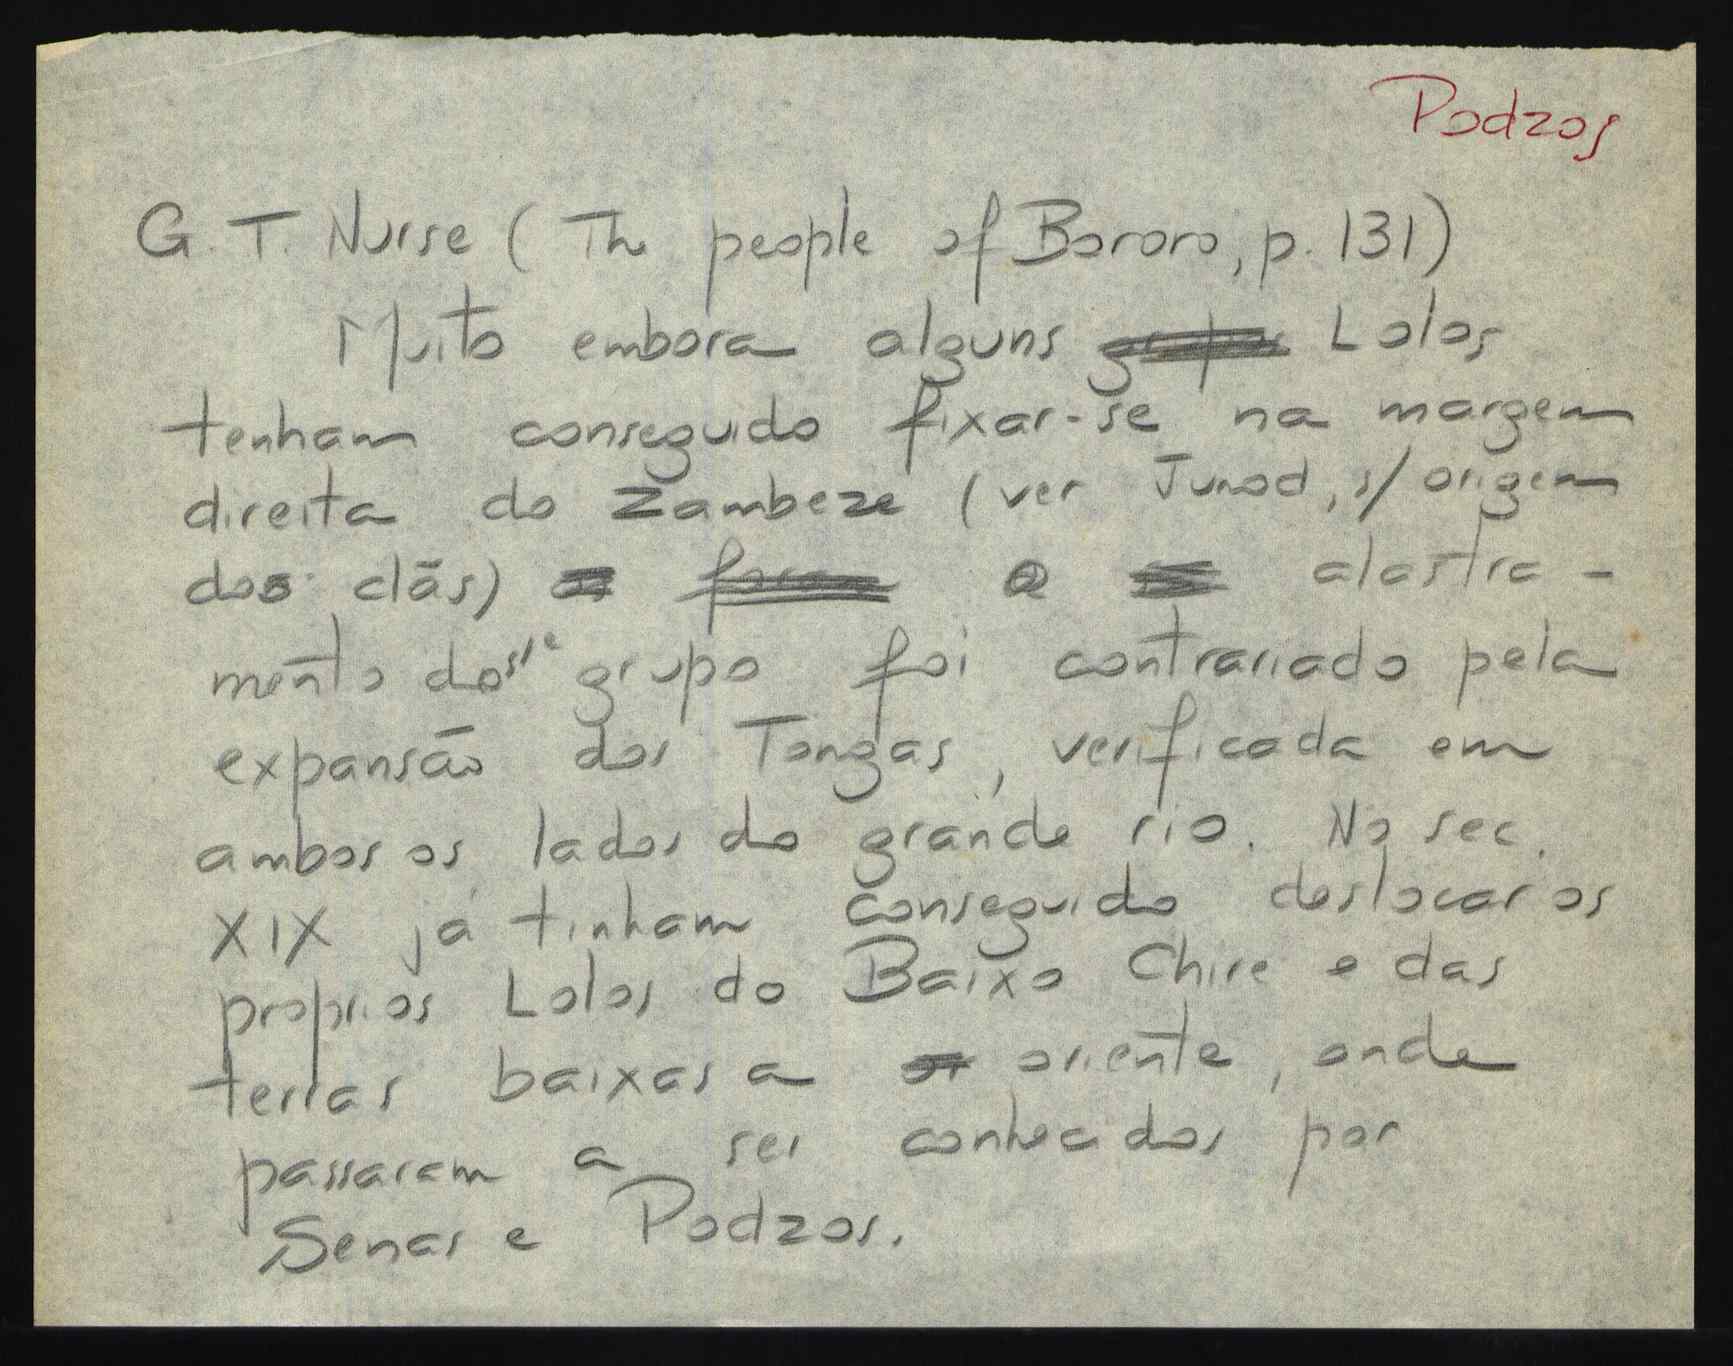 Podzos
G. T. Nurse (The people of Bororo, p. 131)
Muito embora alguns Lolos
tenham conseguido fixar-se na margem
direita do Zambeze (ver Junod, s/ origem
dos clãs) o alastra-
mento deste grupo foi contrariado pela
expansão dos Tongas, verificada em
ambos os lados do grande rio. No sec.
XIX já tinham conseguido deslocar os
proprios Lolos do Baixo Chire e das
terras baixas a oriente, onde
passaram a ser conhecidos por
Senas e Podzos.